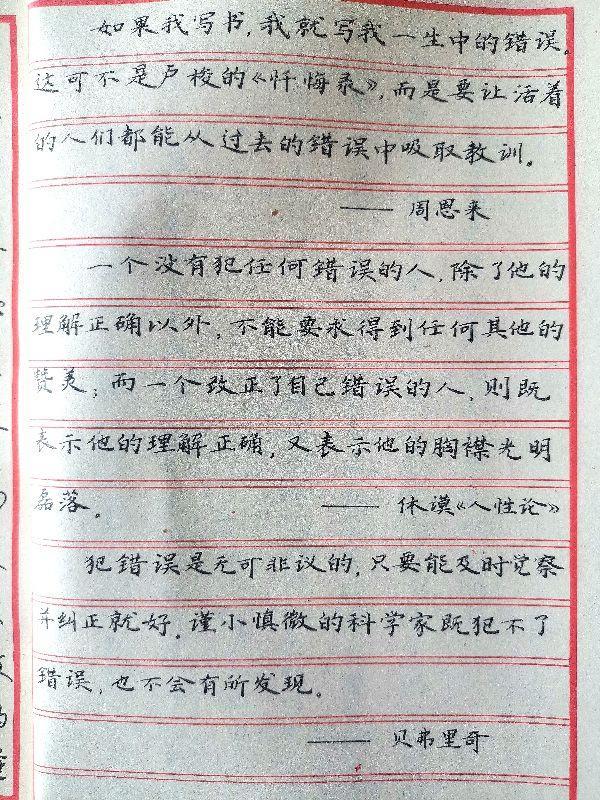 如果我写书，我就写我一生中的错误。
这可不是卢梭的《忏悔录》，而是要让活着
的人们都能从过去的错误中吸取教训。
—— 周恩来
一个没有犯任何错误的人，除了他的
理解正确以外，不能要求得到任何其他的
赞美；而一个改正了自己错误的人，则既
表示他的理解正确，又表示他的胸襟光明
磊落。 —— 休谟《人性论》
犯错误是无可非议的，只要能及时觉察
并纠正就好。谨小慎微的科学家既犯不了
错误，也不会有所发现。
—— 贝弗里哥